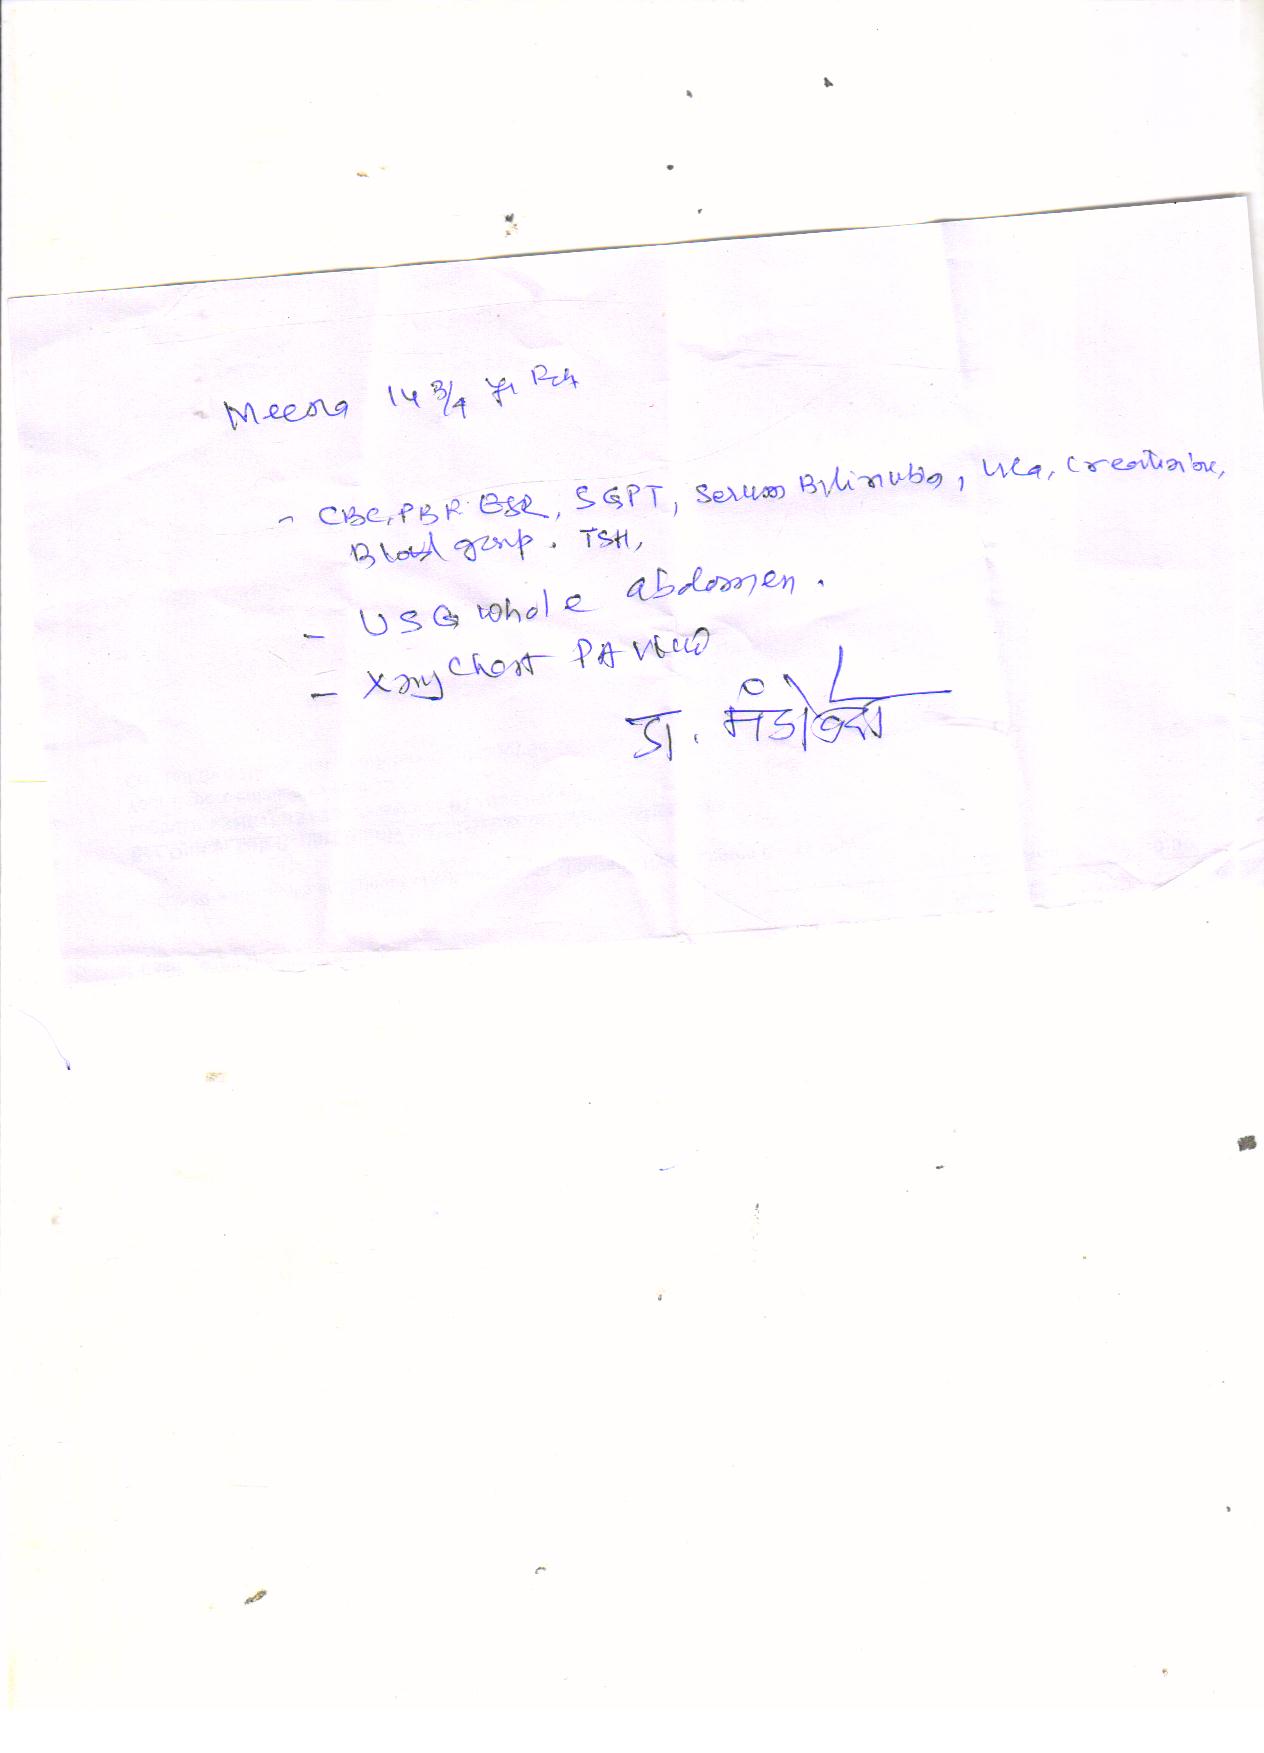 Meena 14 3/4 yr Fch
- CBC, PBF ESR, SGPT, Serum Bilirubin, Urea, Creatinine,
Blood group. TSH,
- USG whole abdomen.
- Xray Chest PA view
डा.